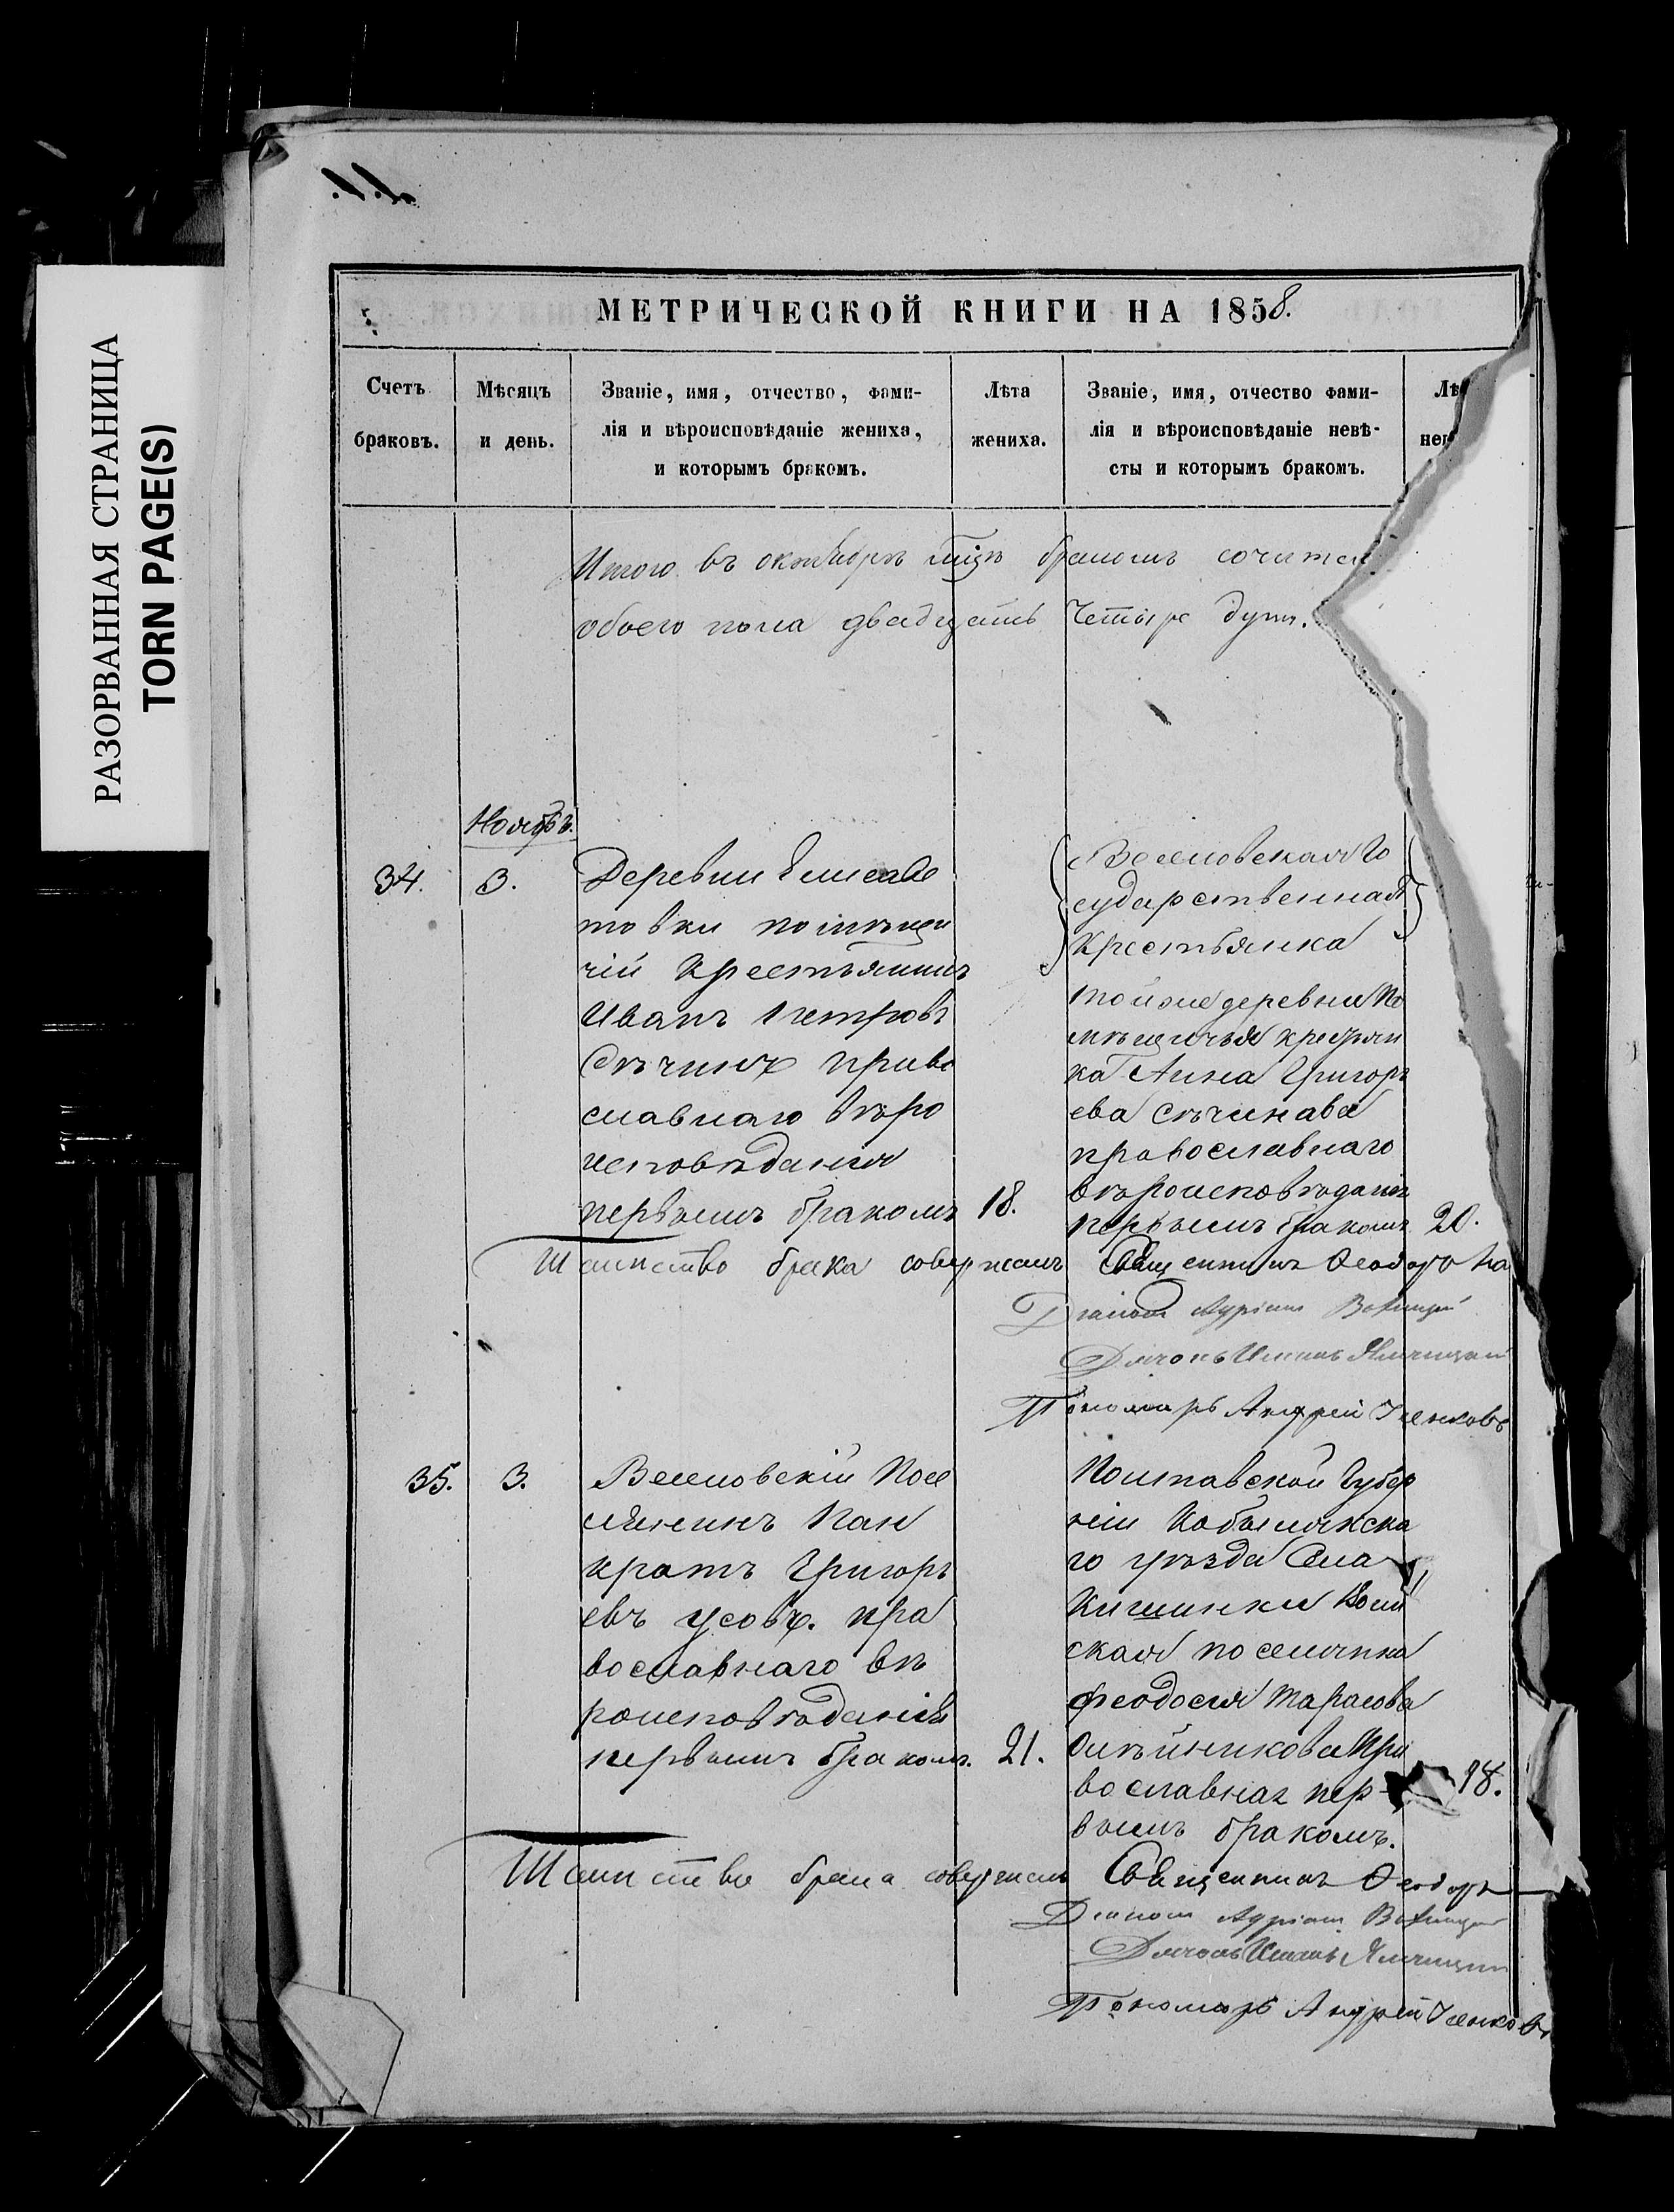 РАЗОРВАННАЯ СТРАНИЦА
TORN PAGE(S)
МЕТРИЧЕСКОЙ КНИГИ НА 1858.
Счетъ браковъ.
Мѣсяцъ и день.
Званіе, имя, отчество, фами-
лія и вѣроисповѣданіе жениха,
и которымъ бракомъ.
Лѣта жениха.
Званіе, имя, отчество фами-
лія и вѣроисповѣданіе невѣ-
сты и которымъ бракомъ.
Лѣ
нев
Итого въ октябрѣ мцѣ бракомъ сочитал
обоего пола двадцать четыре душ.
Ноябрь.
34.
3.
Деревни Елисаве
товки помѣщи
чій крестьянинъ
Иванъ Петровъ
Сѣчинъ право
славнаго вѣро
исповѣданія
первымъ бракомъ
18.
Веселовская Го
сударственная
крестьянка
той же деревни по
мѣщичья крестьян
ка Анна Григорь
ева Сѣчинава
православнаго
вѣроисповѣданія
первымъ бракомъ
20.
Таинство брака совершалъ Священникъ Ѳеодоръ
Діаконъ Адріанъ
Дьячокъ
Пономарь Андрей
35.
3.
Веселовскій Посе
лянинъ Пан
кратъ Григорь
евъ Усовъ. пра
вославнаго вѣ
роисповѣданія
первымъ бракомъ.
21.
Полтавской Губер
ніи Кобылякска
го уѣзда Села
Кишинки
ская поселянка
Феодосія Тарасова
Олѣйникова пра
вославная пер-
вымъ бракомъ.
18.
Таинство брака совершалъ Священникъ Ѳеодоръ
Діаконъ Адріанъ
Дьячокъ
Пономарь Андрей